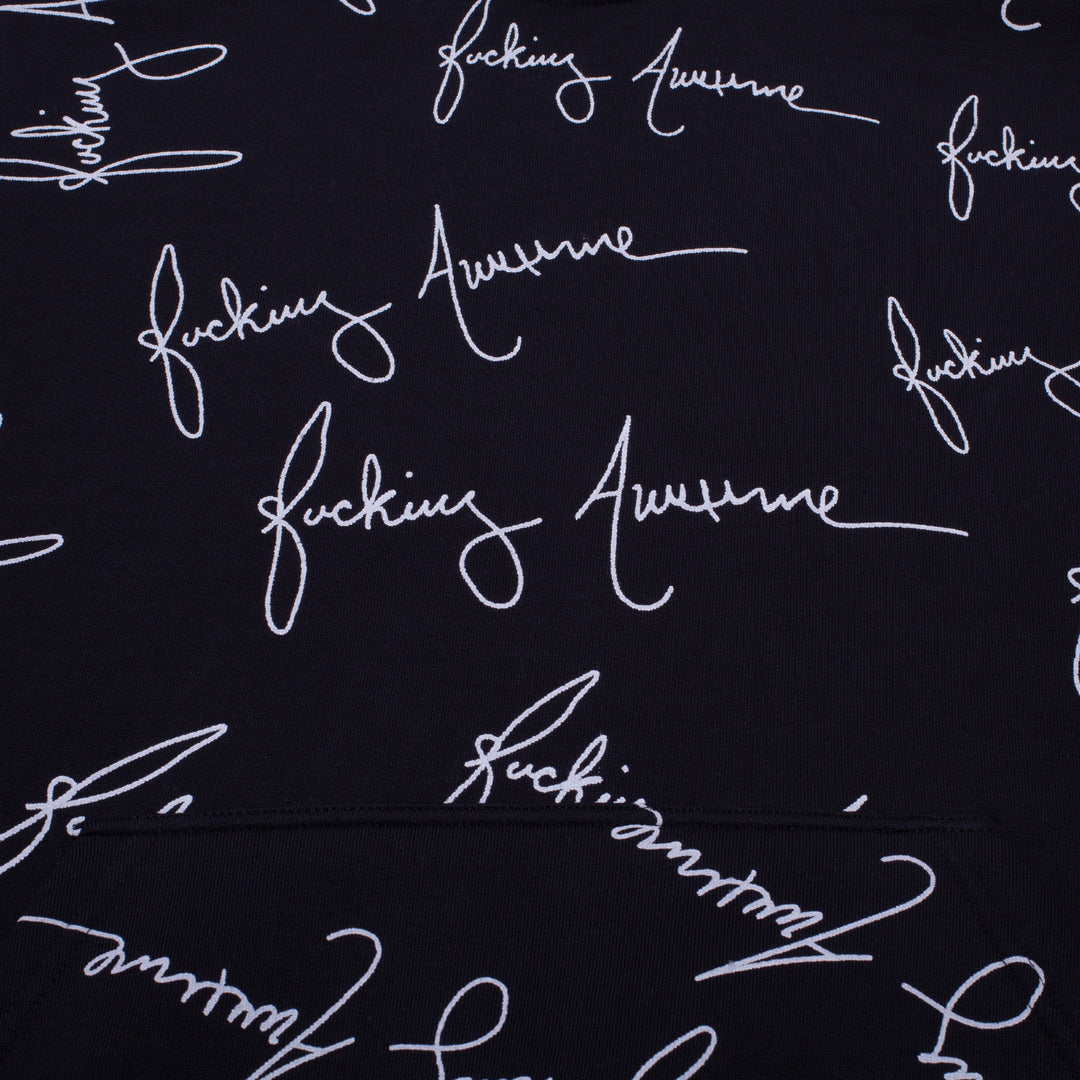 Fucking
Fucking Awesome
Fucking
Fucking Awesome
Fucking
Fucking Awesome
Fucking
Awesome
Awesome